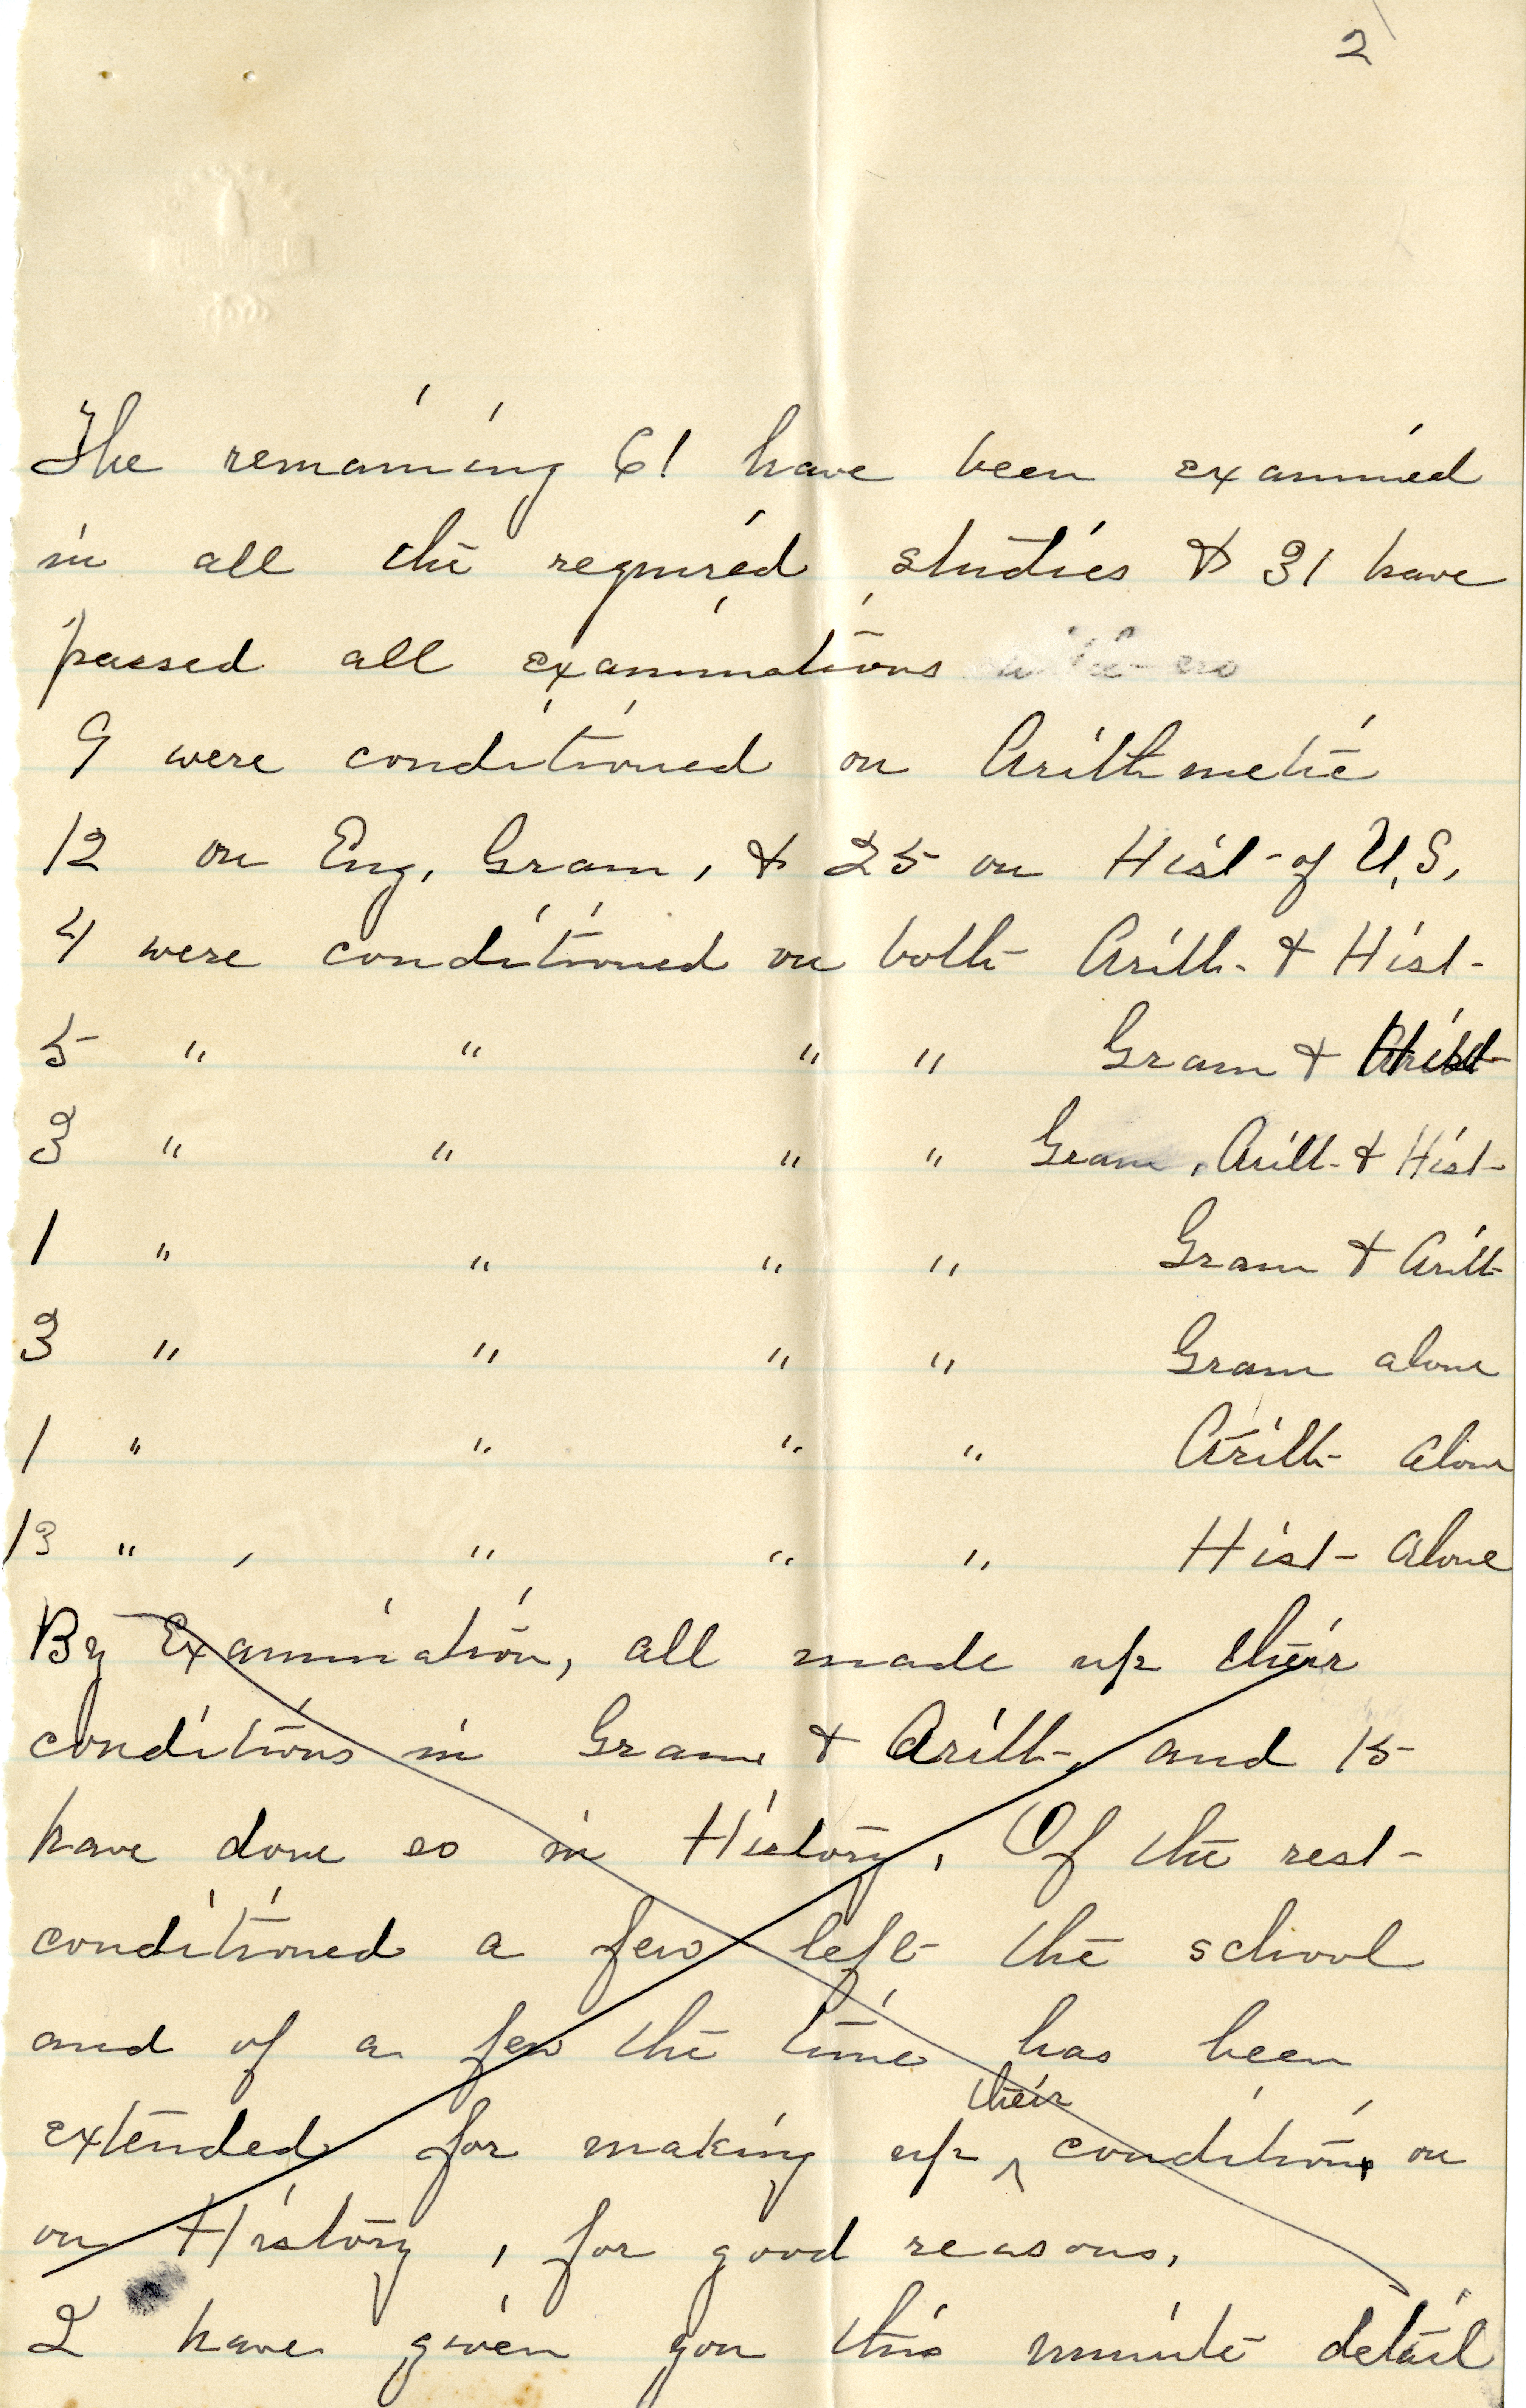 2
The remaining 61 have been examined
in all the required studies & 31 have
passed all examinations
9 were conditioned on Arithmetic
12 on Eng, Gram, & 25 on Hist - of U.S,
4 were conditioned on both Arith - & Hist -
5 " " " " Gram & Hist -
3 " " " " Gram, Arith - & Hist -
1 " " " " Gram & Arith
3 " " " " Gram alone
1 " " " " Arith - alone
13 " " " " Hist - alone
By Examination, all made up their
conditions in Gram & Arith - and 15
have done so in History, Of the rest -
conditioned a few left the school
and of a few the time has been
their
extended for making up ^ conditions on
on History, for good reasons,
I have given you this minute detail